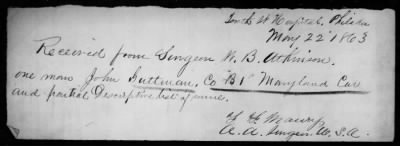 South St Hospital, Philada
May 22d 1863
Received from Surgeon W. B. Atkinson.
one man John Guttman, Co "B 1" Maryland Cav
and partial Descriptive list of same.
H. Maury
A. A. Surgeon U.S.A.